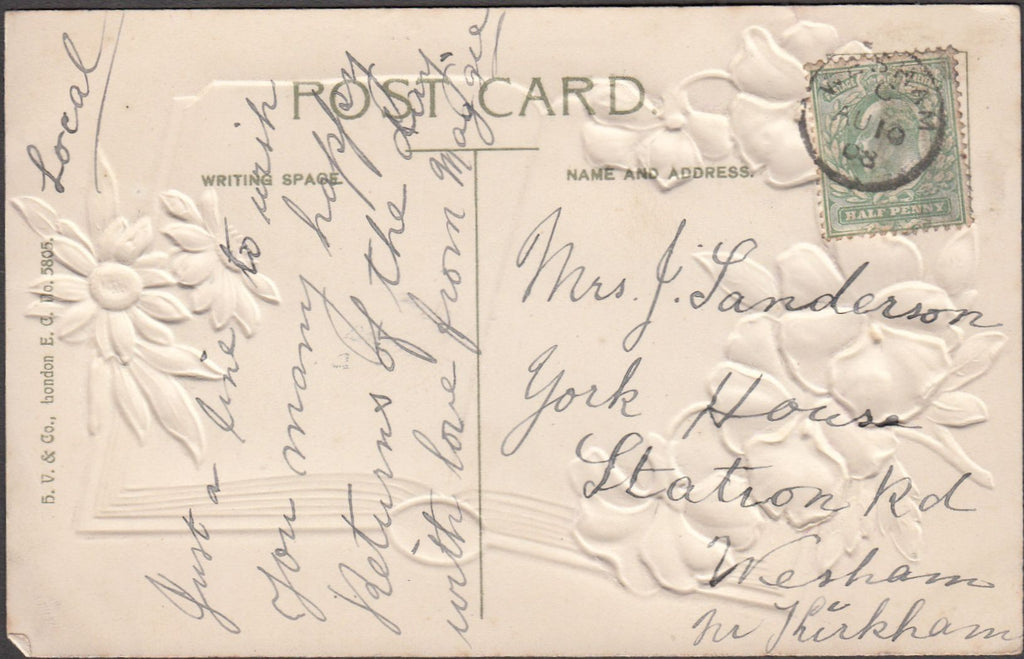 POST CARD.
WRITING SPACE.
NAME AND ADDRESS.
Local
Just a line to wish
You many happy
Returns of the day.
with love from Maggie
Mrs. J. Sanderson
York House
Station Rd
Wesham
nr Kirkham
HALF PENNY
AM
AU 10
08
H. V. & Co., London E. C. No. 5805.